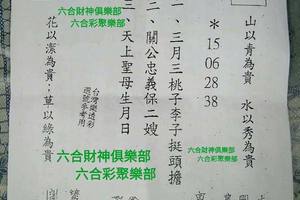 山以青為貴 水以秀為貴
* 15 06 28 38
一、三月三桃子李子挺頭擔
二、關公忠義保二嫂
三、天上聖母生月日
台灣樂透彩
選號參考用
花以潔為貴：草以綠為貴
六合財神俱樂部
六合彩聚樂部
六合財神俱樂部
六合彩聚樂部
六合財神俱樂部
六合彩聚樂部